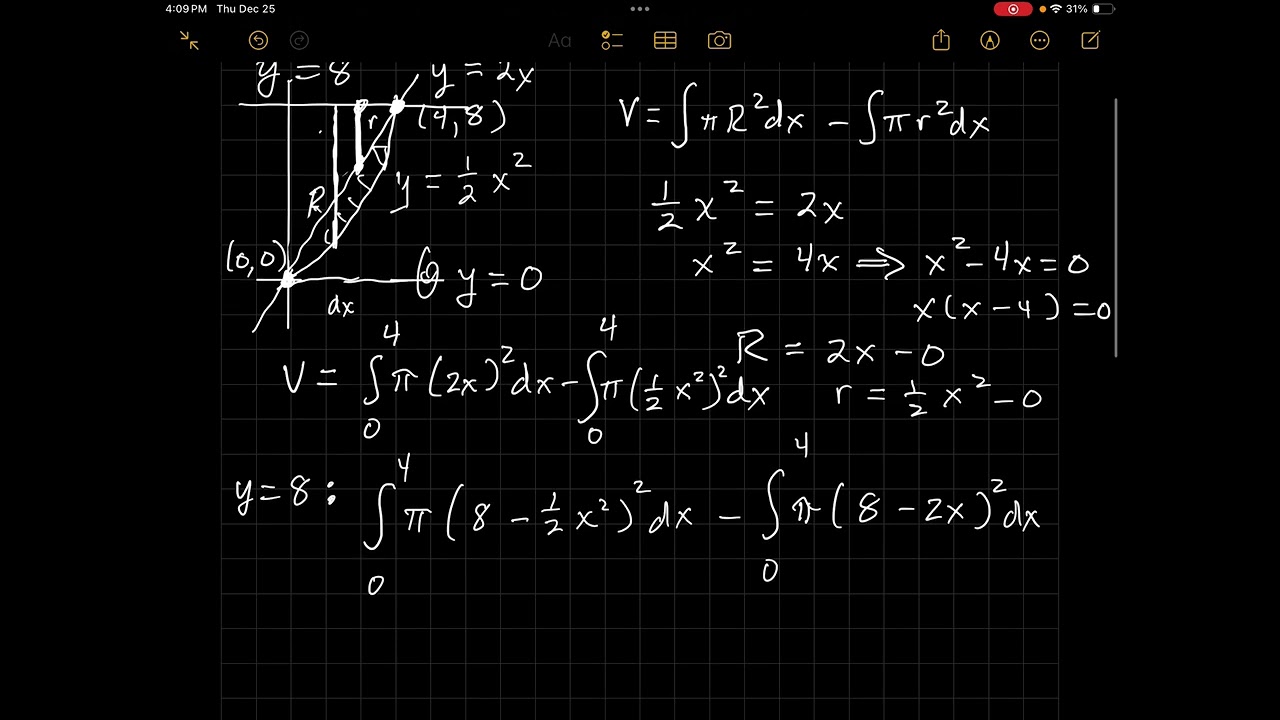 4:09 PM Thu Dec 25
31%
Aa
y = 8
y = 2x
(4,8)
r
y = 1/2 x²
R
(0,0)
y = 0
dx
V = ∫πR²dx − ∫πr²dx
1/2 x² = 2x
x² = 4x ⇒ x² − 4x = 0
x(x − 4) = 0
R = 2x − 0
r = 1/2 x² − 0
V = ∫₀⁴ π(2x)²dx − ∫₀⁴ π(1/2 x²)²dx
y = 8 : ∫₀⁴ π(8 − 1/2 x²)²dx − ∫₀⁴ π(8 − 2x)²dx